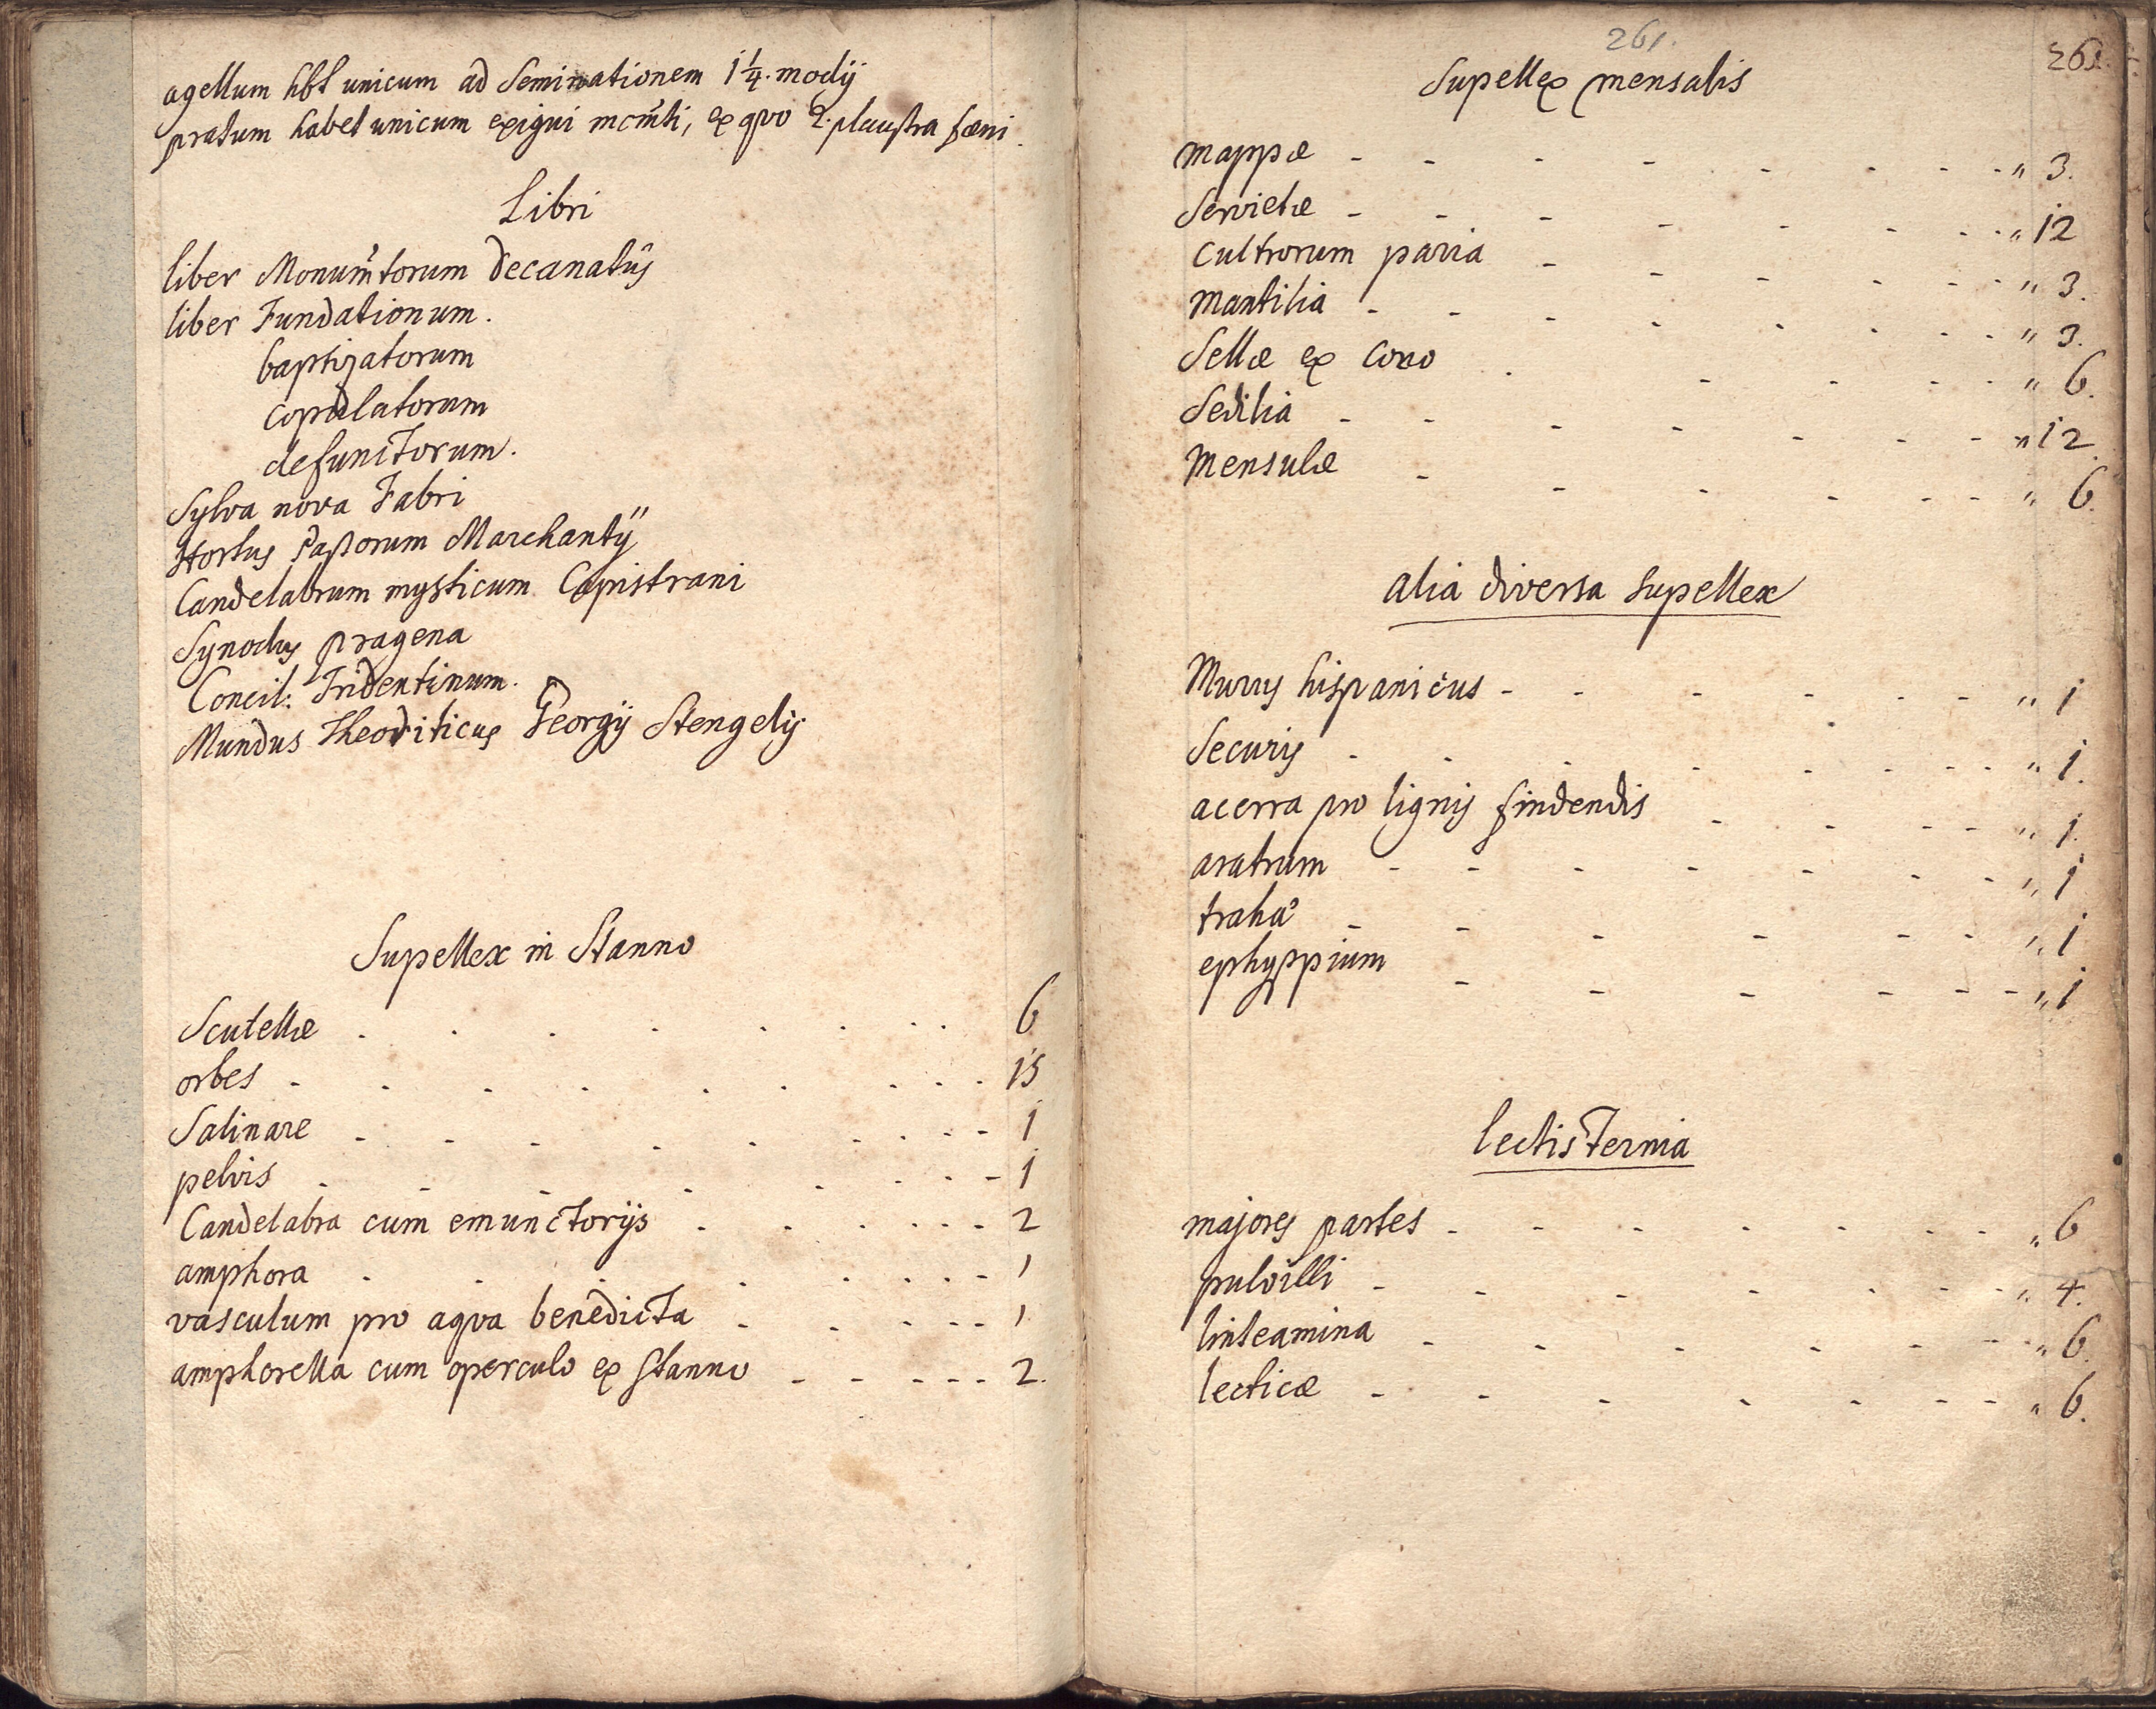 agellum hbt unicum ad Seminationem 1 1/4. modij
pratum habet unicum exigui mom̃ti, ex quo 2. plaustra fæni.
Libri
liber Monum̃torum Decanatûs
liber Fundationum.
baptizatorum
copulatorum
defunctorum.
Sylva nova Fabri
Hortus Pastorum Marchantij
Candelabrum mysticum Capistrani
Synodus pragena
Concil: Tridentinum.
Mundus Theoriticus Georgij Stengelij
Supellex in Stanno
Scutellæ . . . . . . . . 6
orbes - . . . . . . . . 15
Salinare - - - - - - - - - 1
pelvis . - - - - - - - 1
Candelabra cum emunctorijs - - - - - - 2
amphora . . . . - - - - 1
vasculum pro aqva benedicta - - - - - 1
amphorella cum operculo ex stanno - - - - - 2.
261.
261.
Supellex mensalis
mappæ - - - - - - - - " 3.
Servietæ - - - - - - - - " 12
cultrorum paria - - - - - - " 3.
mantilia - - - - - - - - " 3.
Sellæ ex corio . - - - - " 6.
Sedilia - - - - - - - " 12.
mensulæ - - - - - - " 6.
alia diversa supellex
Murus hispanicus - - - - - - " 1
Securis - - - - - - - - " 1.
acerra pro lignis findendis - - - - " 1.
aratrum - - - - - - - " 1
traha - - - - - - " 1
ephyppium - - - - - - " 1
lectisternia
majores partes - - - - - - - " 6
pulvilli - - - - - - - " 4.
linteamina - - - - - - " 6.
lecticæ - - - - - - - " 6.